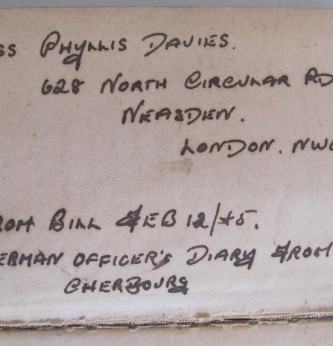 SS PHYLLIS DAVIES.
628 NORTH CIRCULAR RD
NEASDEN.
LONDON. NW
ROM BILL FEB 12/45.
ERMAN OFFICER'S DIARY FROM
CHERBOURG